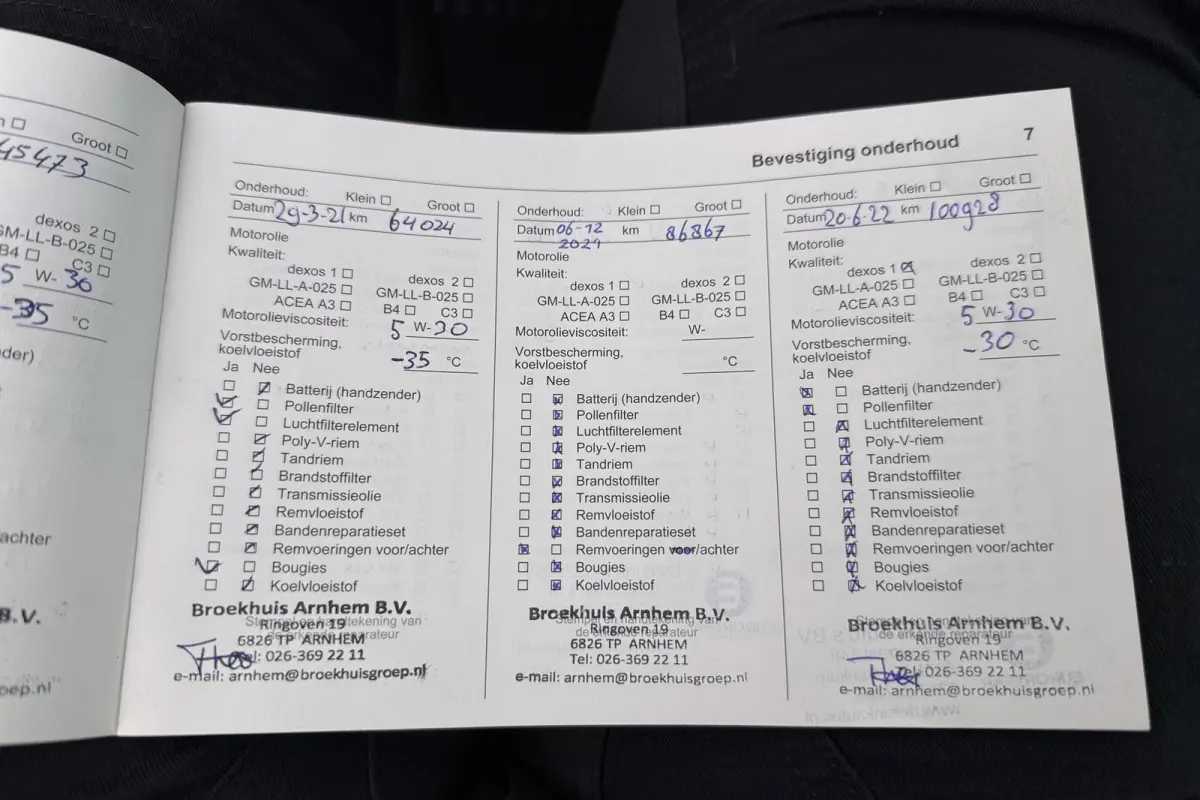 Groot
45473
dexos 2
GM-LL-B-025
B4 C3
5 W-30
-35 °C
achter
B.V.
oep.nl
Bevestiging onderhoud 7
Onderhoud: Klein Groot
Datum 29-3-21 km 64024
Motorolie
Kwaliteit:
dexos 1 dexos 2
GM-LL-A-025 GM-LL-B-025
ACEA A3 B4 C3
Motorolieviscositeit: 5 W-30
Vorstbescherming,
koelvloeistof -35 °C
Ja Nee
Batterij (handzender)
Pollenfilter
Luchtfilterelement
Poly-V-riem
Tandriem
Brandstoffilter
Transmissieolie
Remvloeistof
Bandenreparatieset
Remvoeringen voor/achter
Bougies
Koelvloeistof
Broekhuis Arnhem B.V.
Stempel en handtekening van
Ringoven 19
de erkende reparateur
6826 TP ARNHEM
Tel: 026-369 22 11
e-mail: arnhem@broekhuisgroep.nl
Onderhoud: Klein Groot
Datum 06-12 km 86867
2021
Motorolie
Kwaliteit:
dexos 1 dexos 2
GM-LL-A-025 GM-LL-B-025
ACEA A3 B4 C3
Motorolieviscositeit: W-
Vorstbescherming,
koelvloeistof °C
Ja Nee
Batterij (handzender)
Pollenfilter
Luchtfilterelement
Poly-V-riem
Tandriem
Brandstoffilter
Transmissieolie
Remvloeistof
Bandenreparatieset
Remvoeringen voor/achter
Bougies
Koelvloeistof
Broekhuis Arnhem B.V.
Stempel en handtekening van
Ringoven 19
de erkende reparateur
6826 TP ARNHEM
Tel: 026-369 22 11
e-mail: arnhem@broekhuisgroep.nl
Onderhoud: Klein Groot
Datum 20-6-22 km 100928
Motorolie
Kwaliteit:
dexos 1 dexos 2
GM-LL-A-025 GM-LL-B-025
ACEA A3 B4 C3
Motorolieviscositeit: 5 W-30
Vorstbescherming,
koelvloeistof -30 °C
Ja Nee
Batterij (handzender)
Pollenfilter
Luchtfilterelement
Poly-V-riem
Tandriem
Brandstoffilter
Transmissieolie
Remvloeistof
Bandenreparatieset
Remvoeringen voor/achter
Bougies
Koelvloeistof
Broekhuis Arnhem B.V.
Stempel en handtekening van
de erkende reparateur
Ringoven 19
6826 TP ARNHEM
Tel: 026-369 22 11
e-mail: arnhem@broekhuisgroep.nl